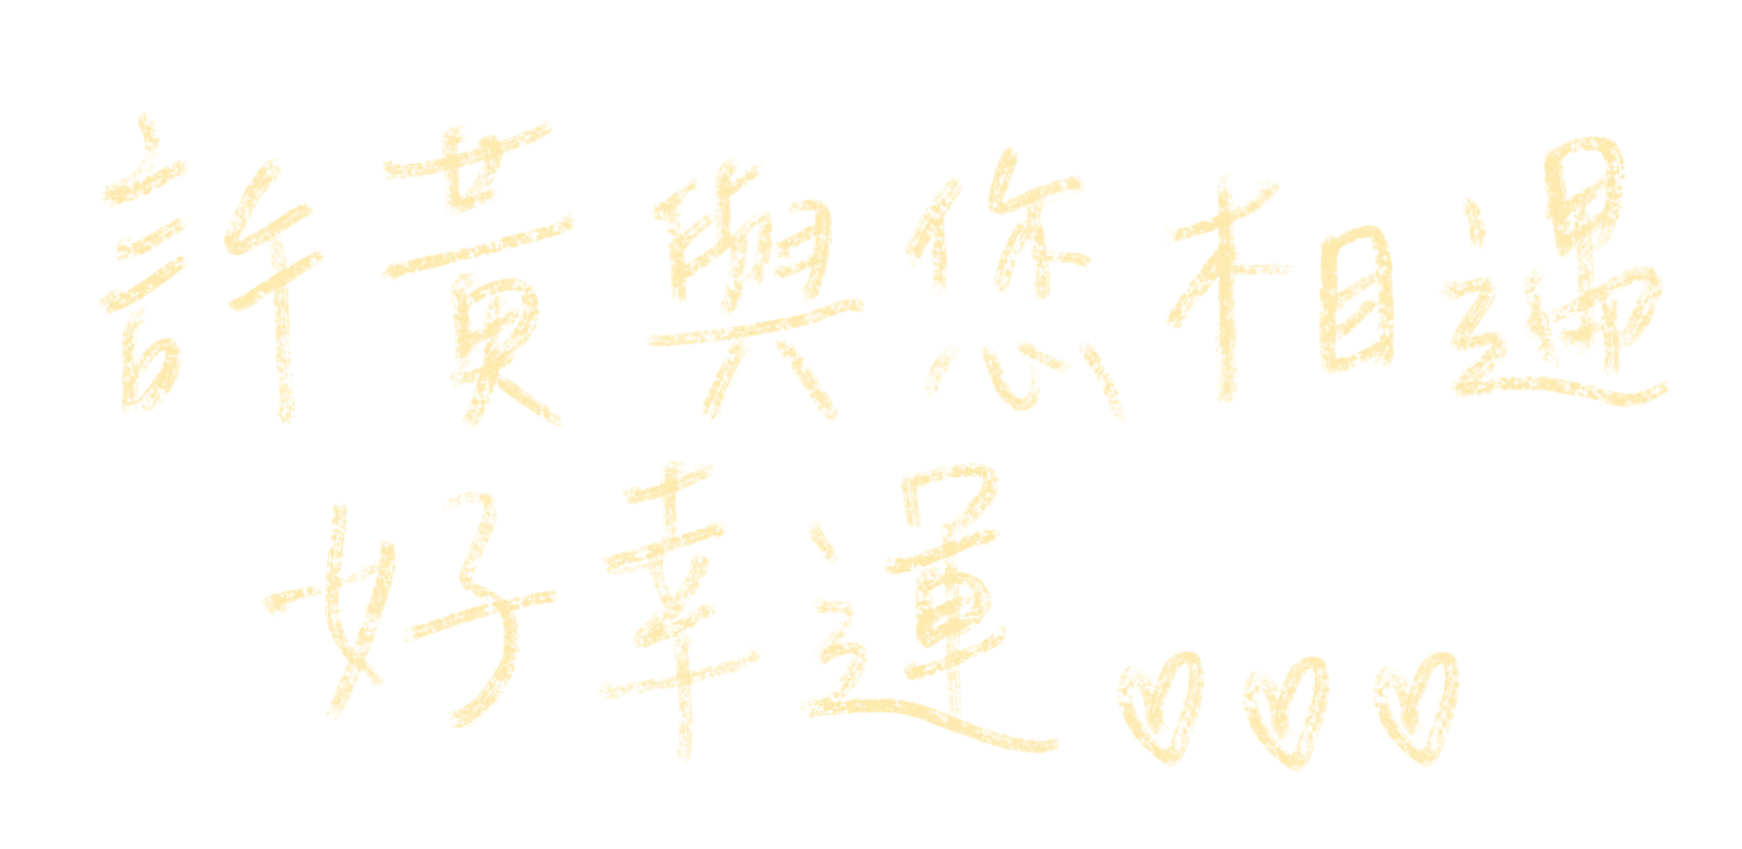 許黃與您相遇
好幸運♡♡♡